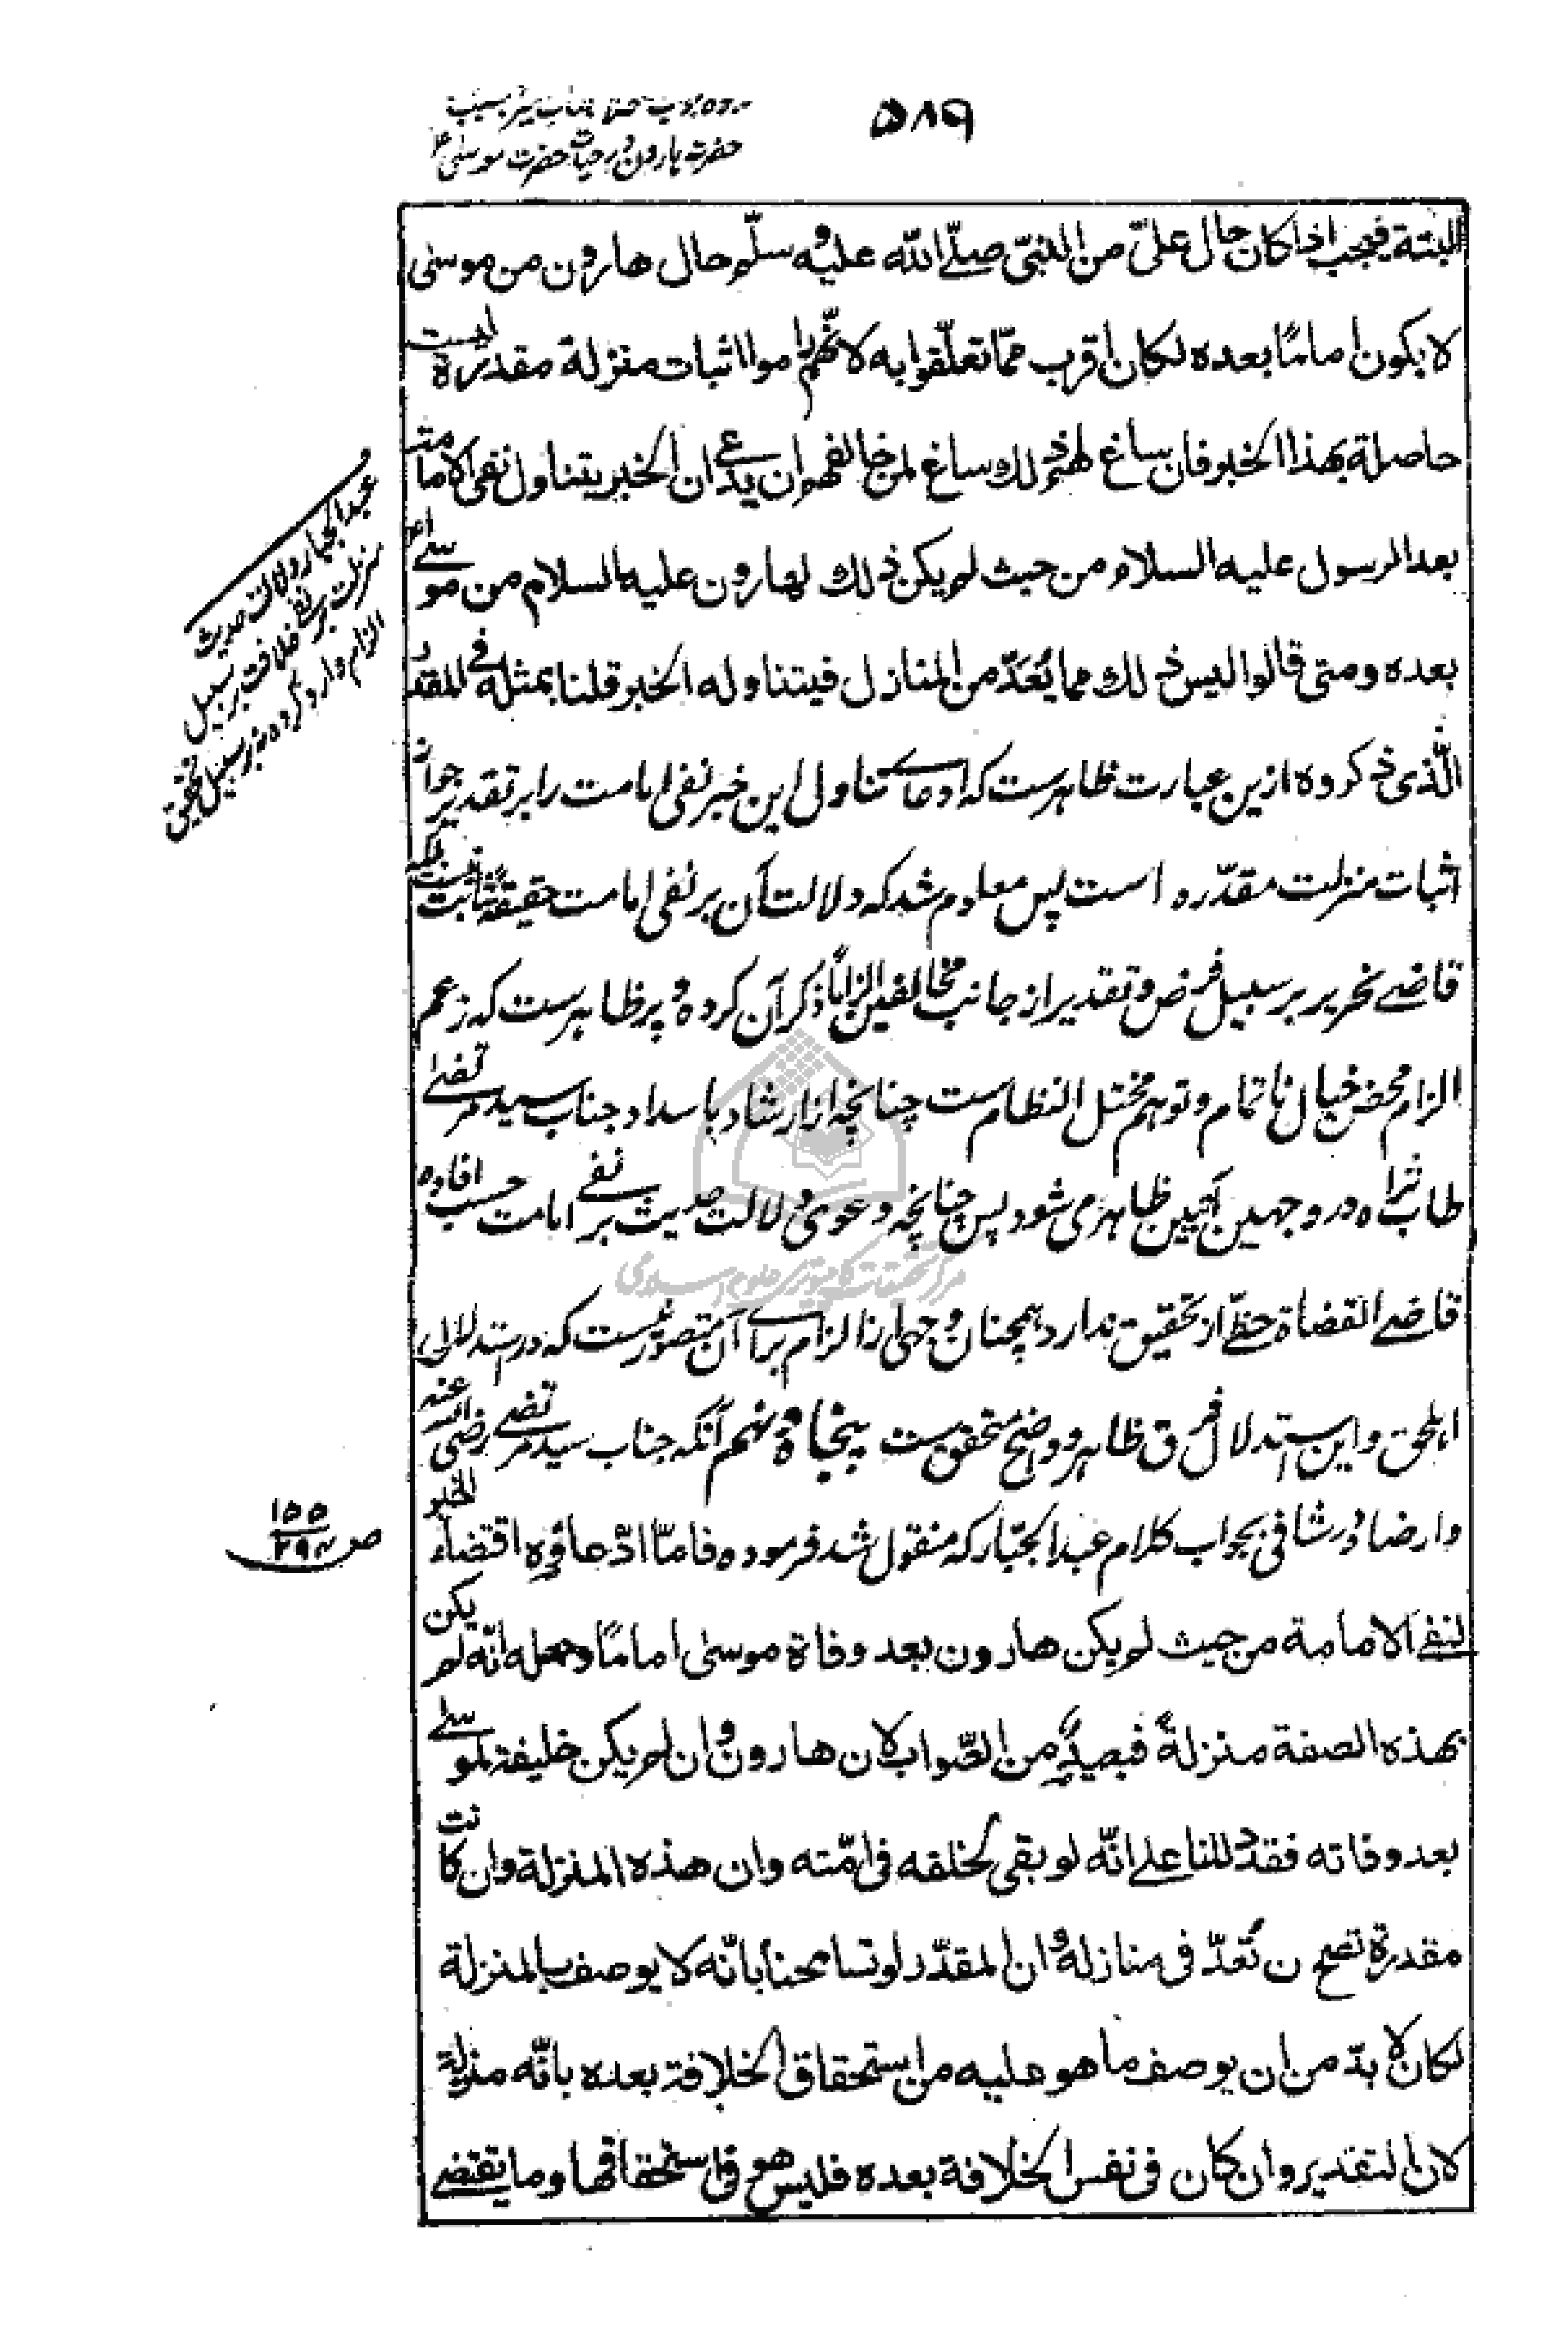 ۵۸۹
حضرت هارون در حیات حضرت موسی ع
البتة فيجب اذا كان حال علىّ من النبىّ صلّے اللّه عليه و سلّم حال هارون من موسى
لا يكون اماما بعده لكان اقرب ممّا تعلّقوا به لانّهم راموا اثبات منزلة مقدرة ليست
حاصلة بهذا الخبر فان ساغ لهم ذلك ساغ لمن خالفهم ان يدّعى ان الخبر يتناول نفى الامامته
بعد الرسول عليه السلام من حيث لم يكن ذلك لهارون عليه السلام من موسے
بعده و متى قالوا ليس ذلك مما يُعَدّ من المنازل فيتناوله الخبر قلنا بمثله فى المقدر
الّذى ذكروه ازين عبارت ظاهرست كه ادعاے تناول اين خبر نفى امامت را بر تقدير جواز
اثبات منزلت مقدّره است پس معلوم شد كه دلالت آن بر نفى امامت حقيقةً ثابت نيست بلكه
قاضے نحرير بر سبيل فرض و تقدير از جانب مخالفين الزاماً ذكر آن كرده و پر ظاهرست كه زعم
الزام محض خيال ناتمام و توهم مختل النظام ست چنانچه از ارشاد باسداد جناب سيد مرتضے
طاب ثراه در وجهين آتيين ظاهر مى شود پس چنانچه دعوى دلالت حديث بر نفے امامت حسب افاده
قاضے القضاة حظّے از تحقيق ندارد همچنان وجهى از الزام براے آن متصور نيست كه در استدلال
اهل حق و اين استدلال فرق ظاهر و واضح متحقق ست پنجاه و نهم آنكه جناب سيد مرتضے رضى الله عنه
و ارضاه در شافى بجواب كلام عبد الجبّار كه منقول شد فرموده فامّا ادّعاؤه اقتضاء الخبر
لنفے الامامة من حيث لم يكن هارون بعد وفاة موسى اماما و جعله انّه لم يكن
بهذه الصفة منزلةً فبعيدٌ من الصّواب لان هارون و ان لم يكن خليفة لموسے
بعد وفاته فقد دللنا على انّه لو بقى لخلفه فى امّته و ان هذه المنزلة و ان كانت
مقدرة تصح ن تُعدّ فى منازله و ان المقدّر لو تسامحنا بانّه لا يوصف بالمنزلة
لكان لا بدّ من ان يوصف ما هو عليه من استحقاق الخلافة بعده بانّه منزلة
لان التقدير و ان كان فى نفس الخلافة بعده فليس هو فى استحقاقها و ما يقتضے
عبد الجبار دلالت حديث
منزلت بر نفے خلافت بر سبيل
الزام وارد كرده نه بر سبيل تحقيق
ص ۱۵۵
مركز تحقيقات كامپيوترى علوم اسلامى